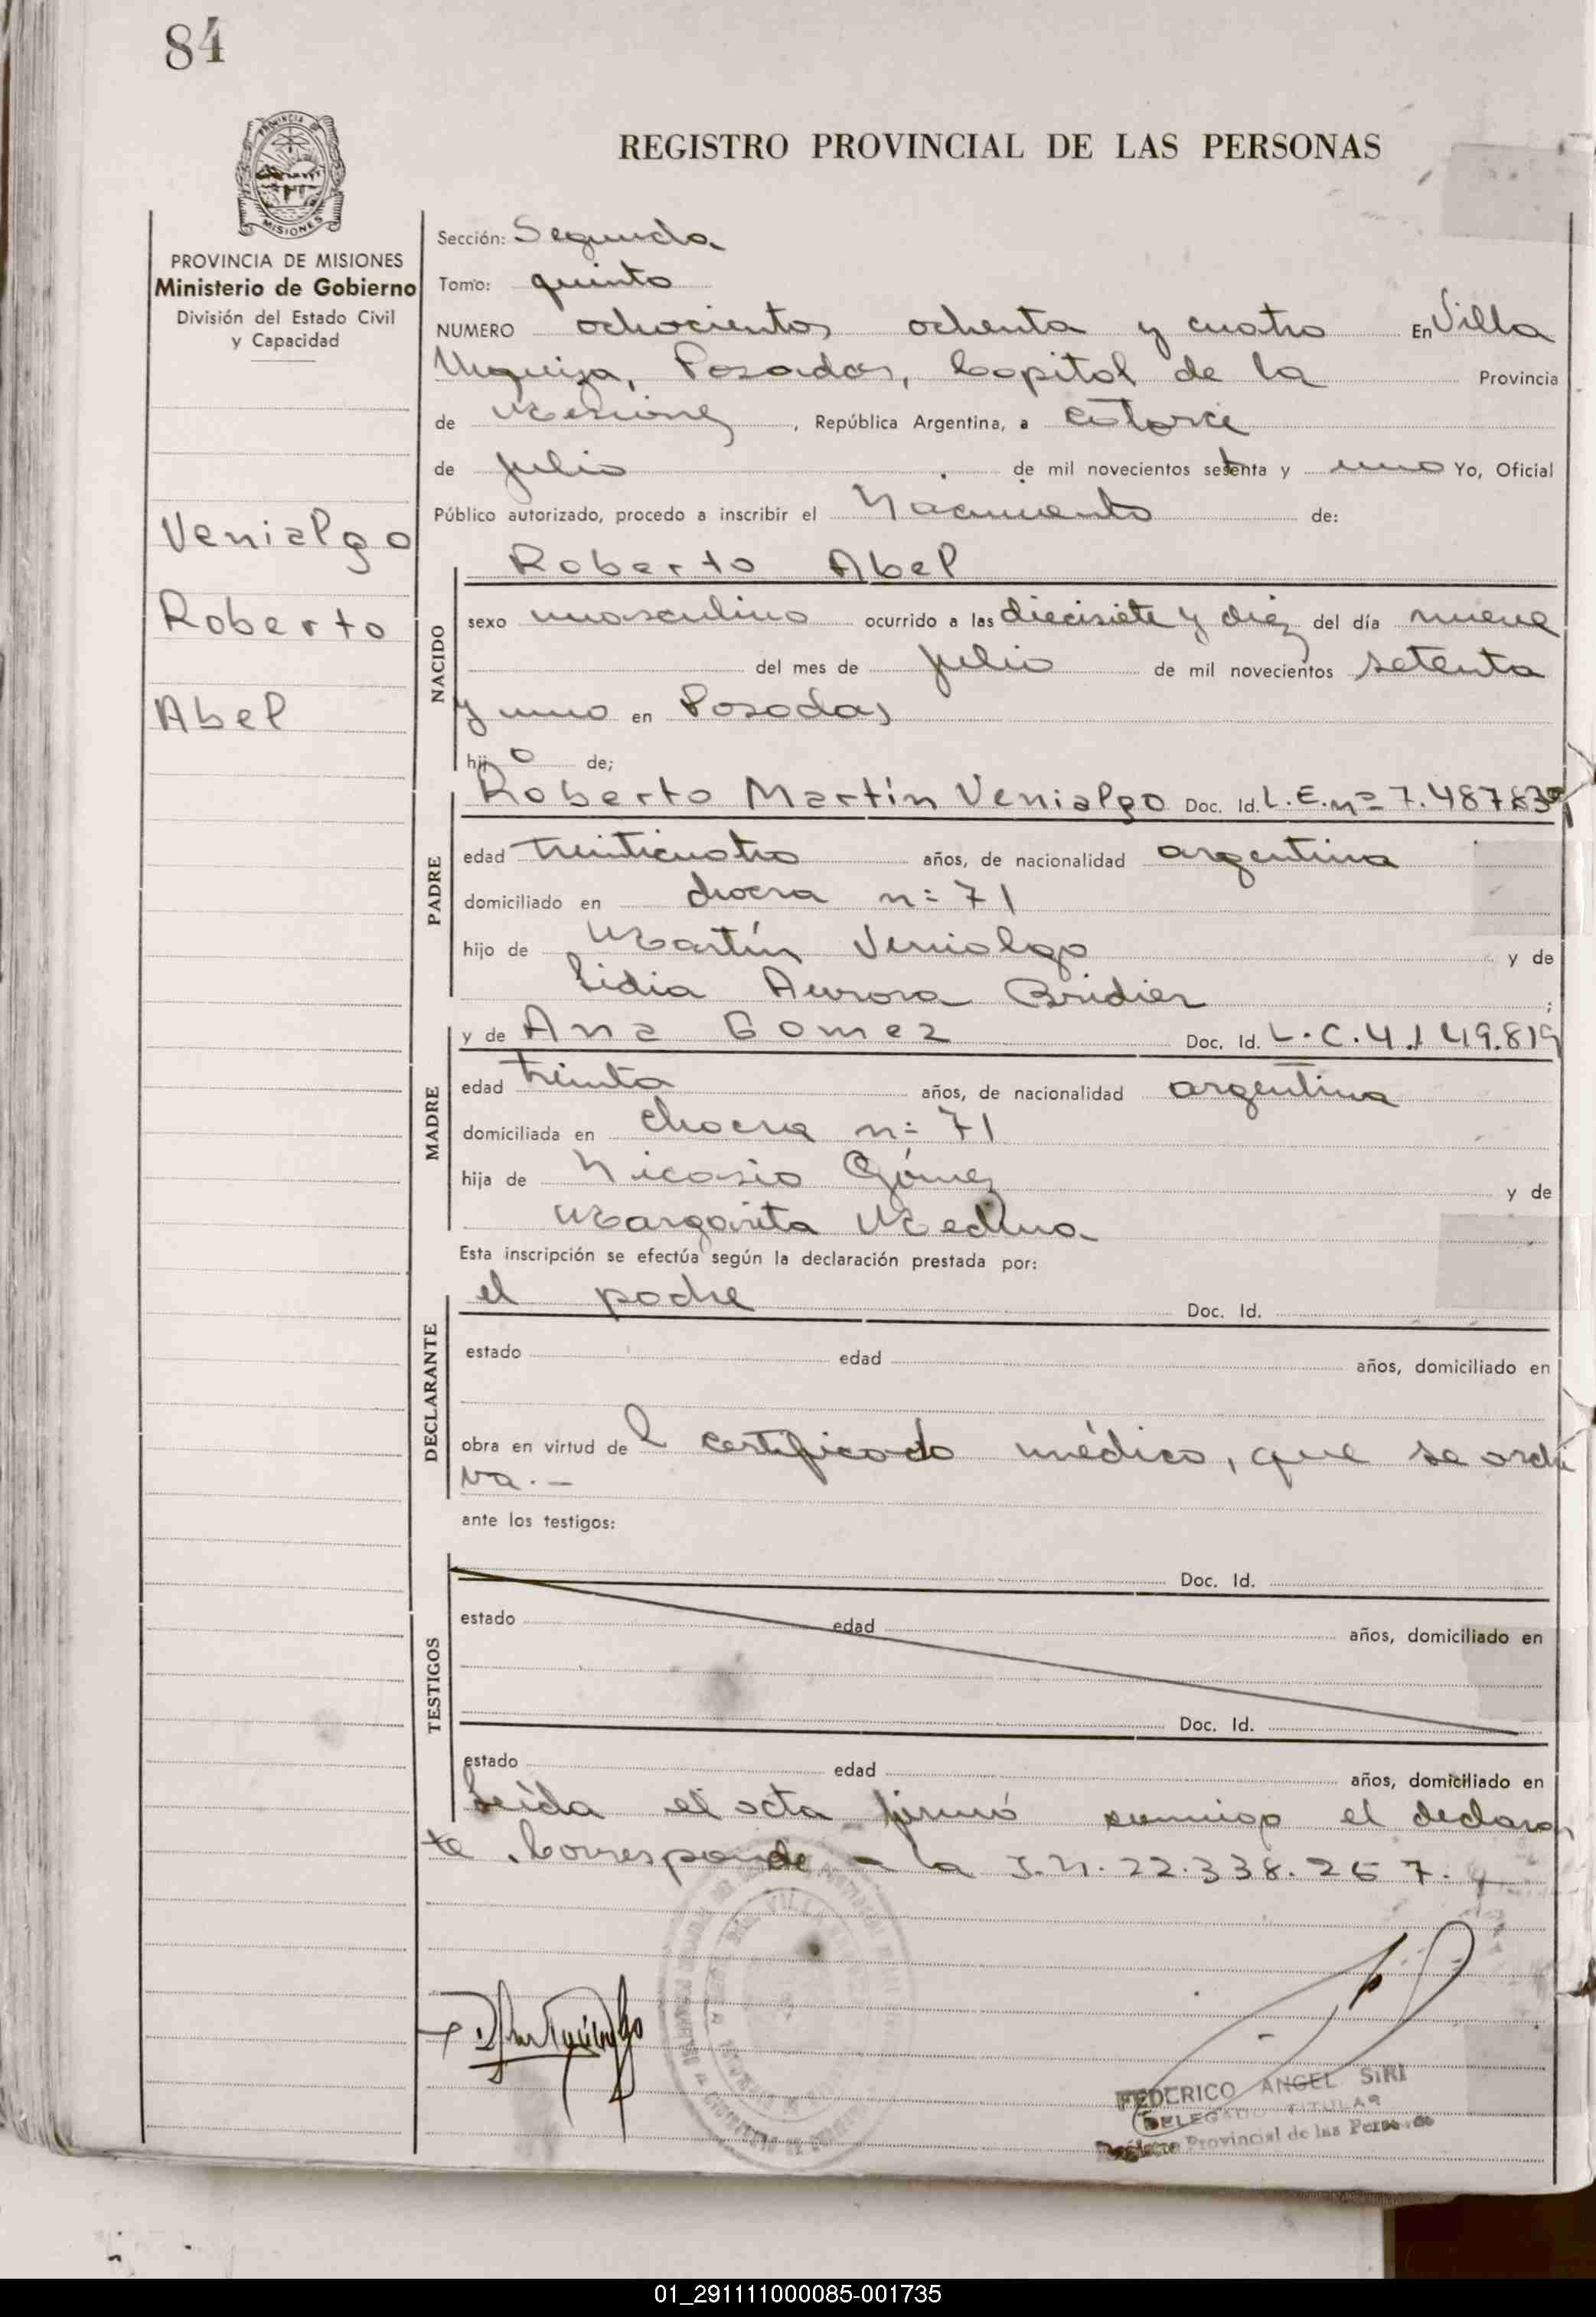 84
PROVINCIA DE
MISIONES
REGISTRO PROVINCIAL DE LAS PERSONAS
PROVINCIA DE MISIONES
Ministerio de Gobierno
División del Estado Civil
y Capacidad
Venialgo
Roberto
Abel
Sección: Segunda
Tomo: quinto
NUMERO ochocientos ochenta y cuatro En Villa
Urquiza, Posadas, Capital de la Provincia
de Misiones, República Argentina, a catorce
de julio de mil novecientos setenta y uno Yo, Oficial
Público autorizado, procedo a inscribir el Nacimiento de:
NACIDO
Roberto Abel
sexo masculino ocurrido a las diecisiete y diez del día nueve
del mes de julio de mil novecientos setenta
y uno en Posadas
hijo de;
PADRE
Roberto Martín Venialgo Doc. Id. L.E. nº 7.487.839
edad treinticuatro años, de nacionalidad argentina
domiciliado en chacra n= 71
hijo de Martín Venialgo y de
Lidia Aurora Bridier ;
MADRE
y de Ana Gomez Doc. Id. L.C.4.149.819
edad treinta años, de nacionalidad argentina
domiciliada en chacra n= 71
hija de Nicasio Gómez y de
Margarita Medina
Esta inscripción se efectúa según la declaración prestada por:
DECLARANTE
el padre Doc. Id.
estado edad años, domiciliado en
obra en virtud del certificado médico, que se archi
va.-
ante los testigos:
TESTIGOS
Doc. Id.
estado edad años, domiciliado en
Doc. Id.
estado edad años, domiciliado en
Leída el acta firmó conmigo el declaran
te. Corresponde a la I.N. 22.338.257.
FEDERICO ANGEL SIRI
DELEGADO TITULAR
Registro Provincial de las Personas
01_291111000085-001735